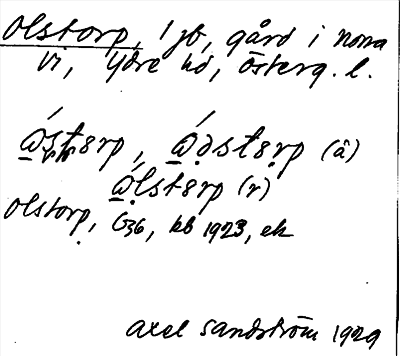 Olstorp, 1 jb, gård i norra
vi, Ydre hd, Österg. l.
(â)
(r)
Olstorp, G36, kb 1923, ek
Axel Sandström 1929